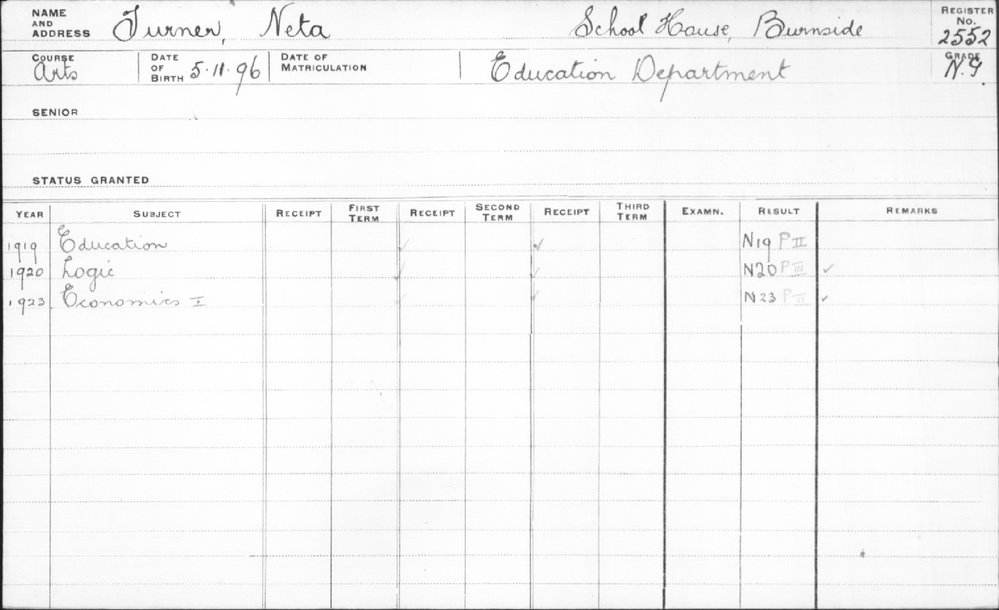 NAME AND ADDRESS Turner, Neta School House, Burnside REGISTER No. 2552
COURSE Arts DATE OF BIRTH 5.11.96 DATE OF MATRICULATION Education Department GRADE N.G.
SENIOR
STATUS GRANTED
YEAR SUBJECT RECEIPT FIRST TERM RECEIPT SECOND TERM RECEIPT THIRD TERM EXAMN. RESULT REMARKS
1919 Education ✓ ✓ N19 P II
1920 Logic ✓ ✓ N20 P III ✓
1923 Economics I ✓ ✓ N23 P II ✓